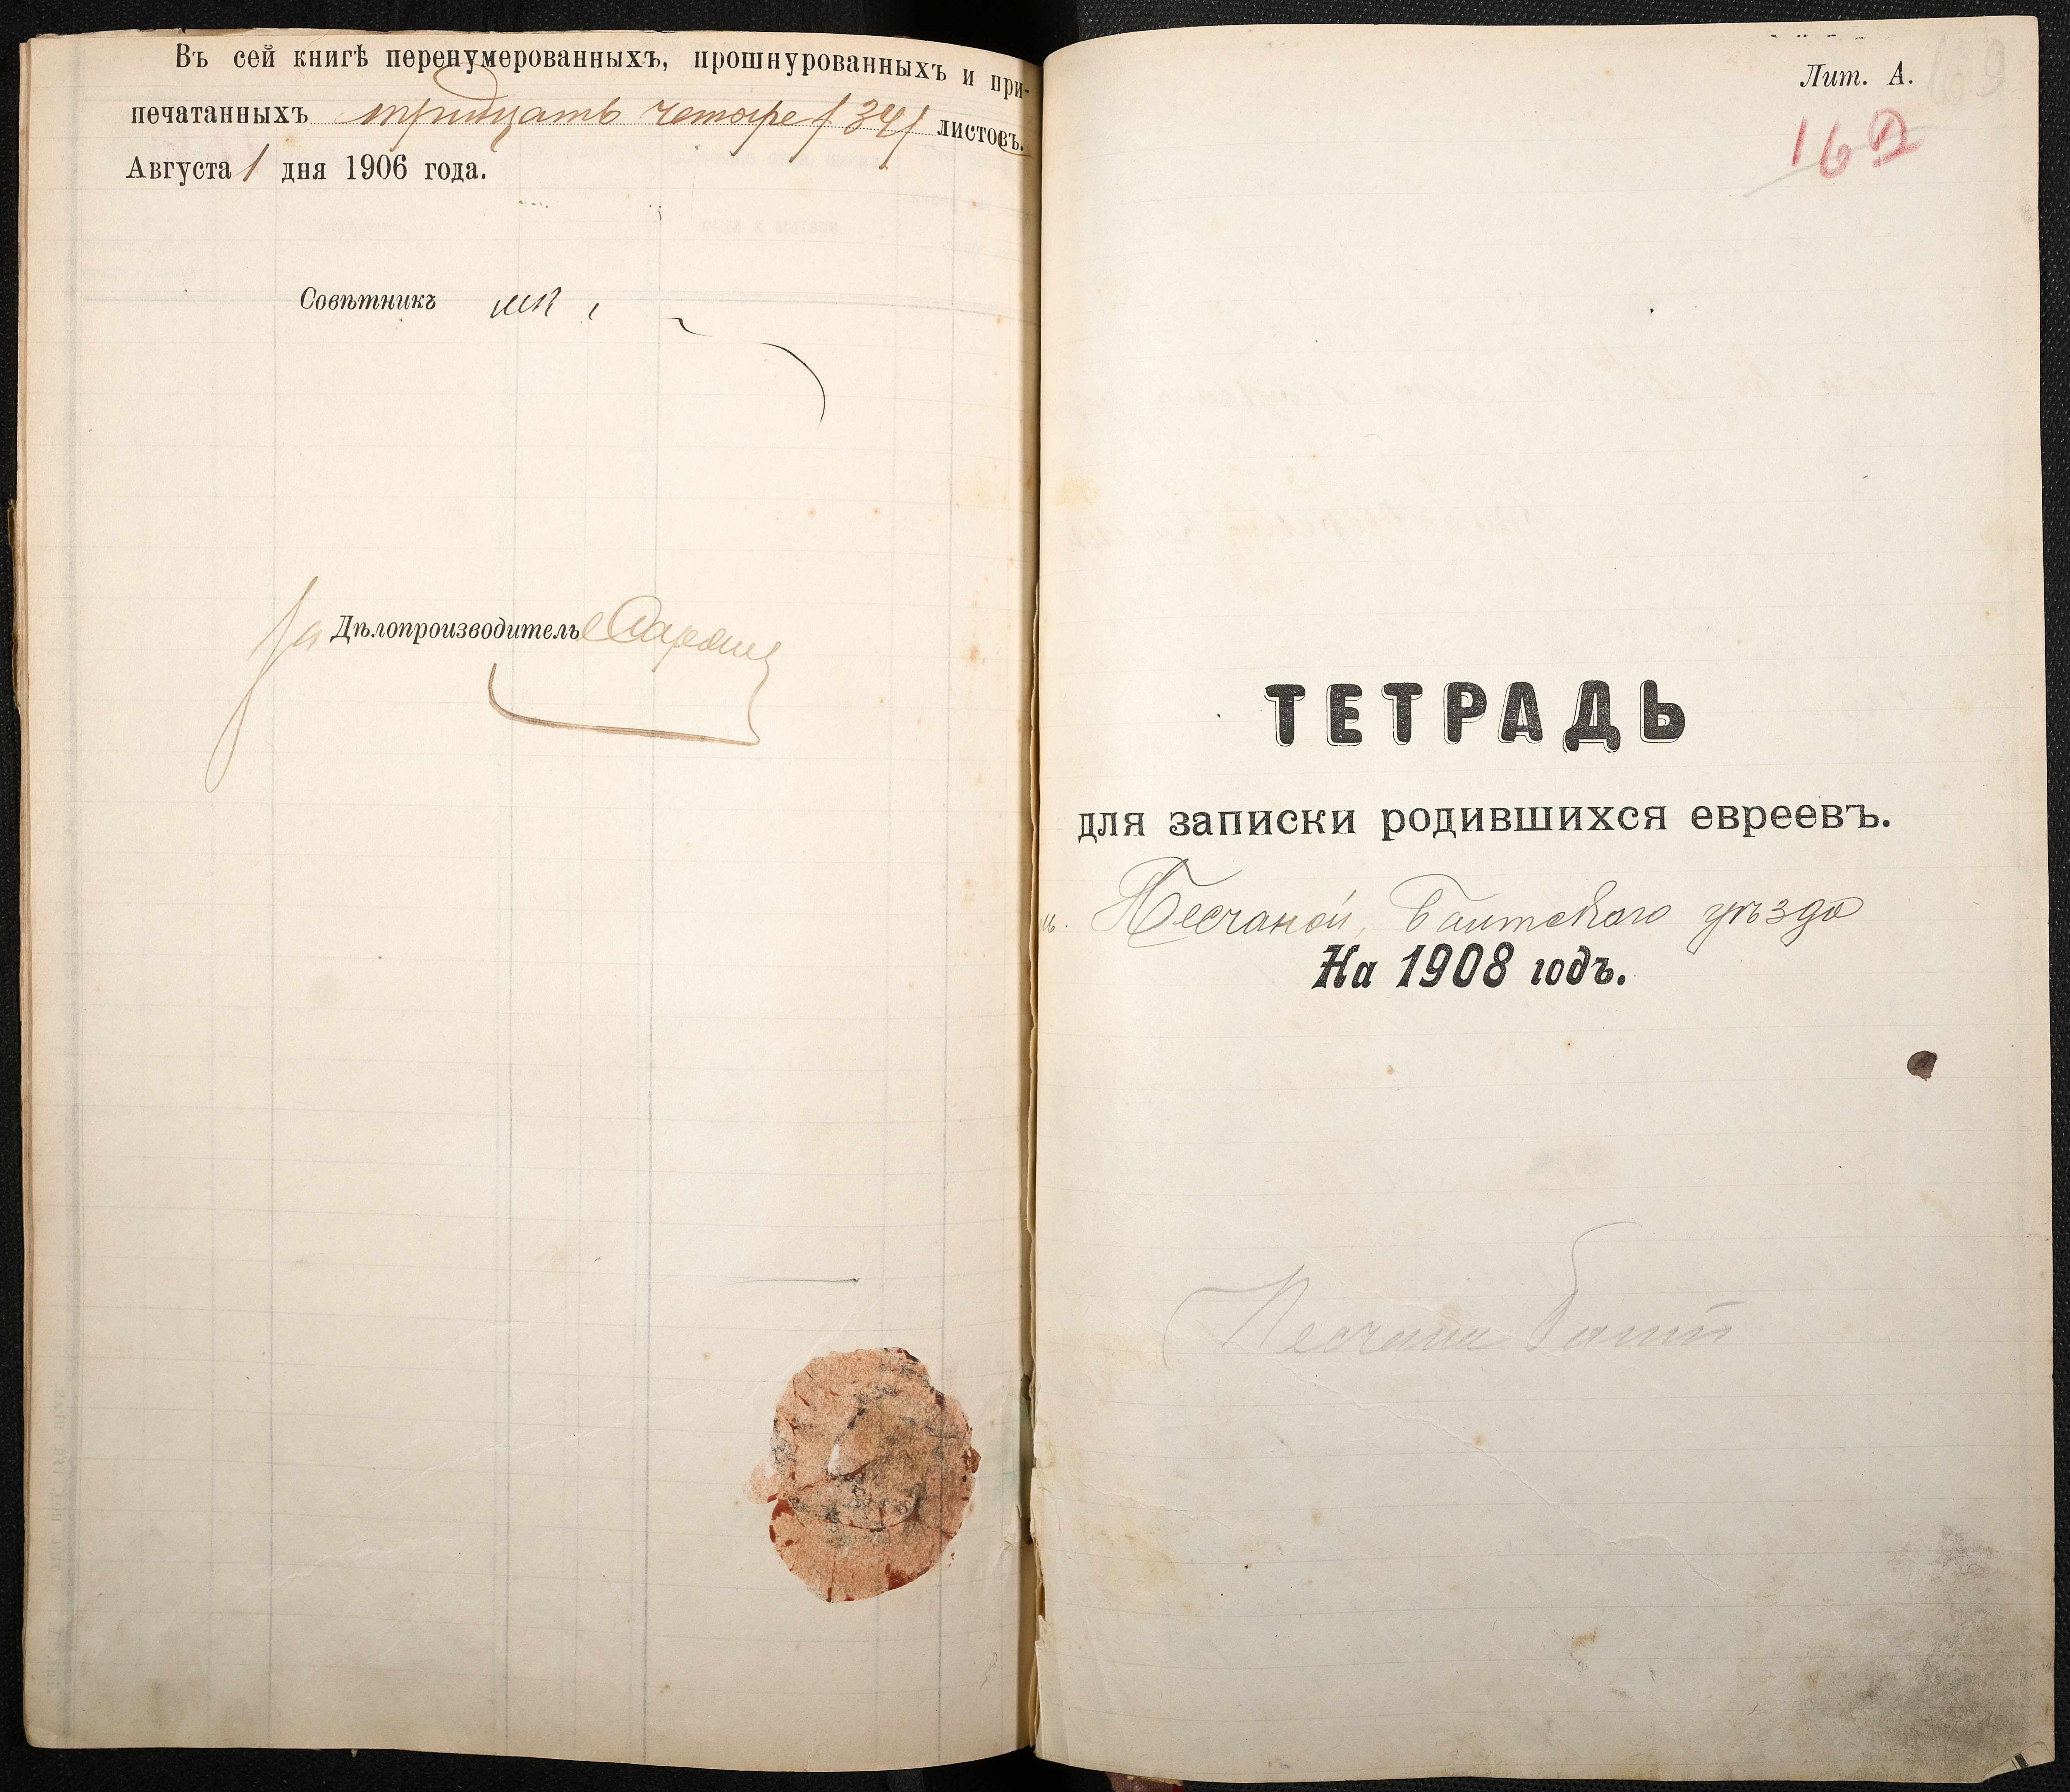 Въ сей книгѣ перенумерованныхъ, прошнурованныхъ и при-
печатанныхъ тридцать четыре /34/ листовъ.
Августа 1 дня 1906 года.
Совѣтникъ
За Дѣлопроизводитель
Лит. А.
162
ТЕТРАДЬ
для записки родившихся евреевъ.
м. Песчаной, Балтскаго уѣзда
На 1908 годъ.
Песчана Балт